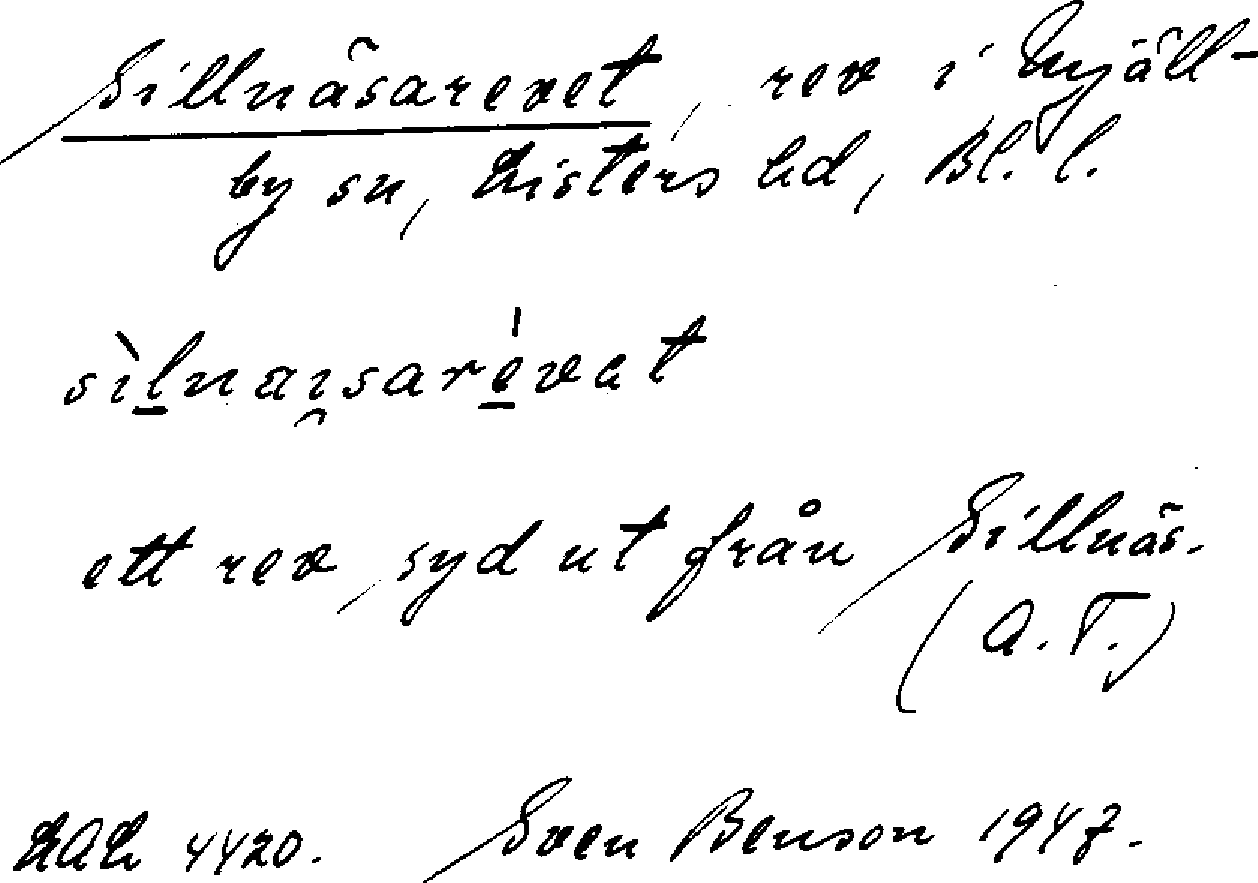 Sillnäsarevet, rev i Mjäll-
by sn, Listers hd, Bl. l.
sìlnaı̯sarévat
ett rev, syd ut från Sillnäs.
(A.T.)
LAL 4420. Sven Benson 1947.